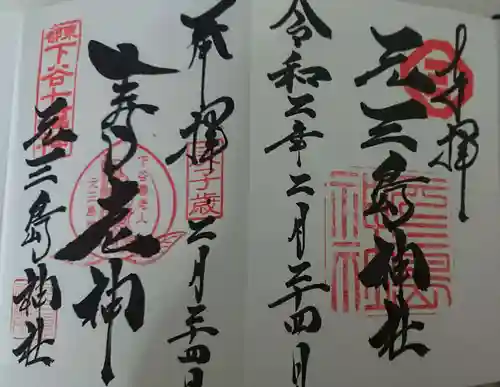 奉拝
元三島神社
令和二年二月二十四日
奉拝 二月二十四日
子歳
寿老神
元三島神社